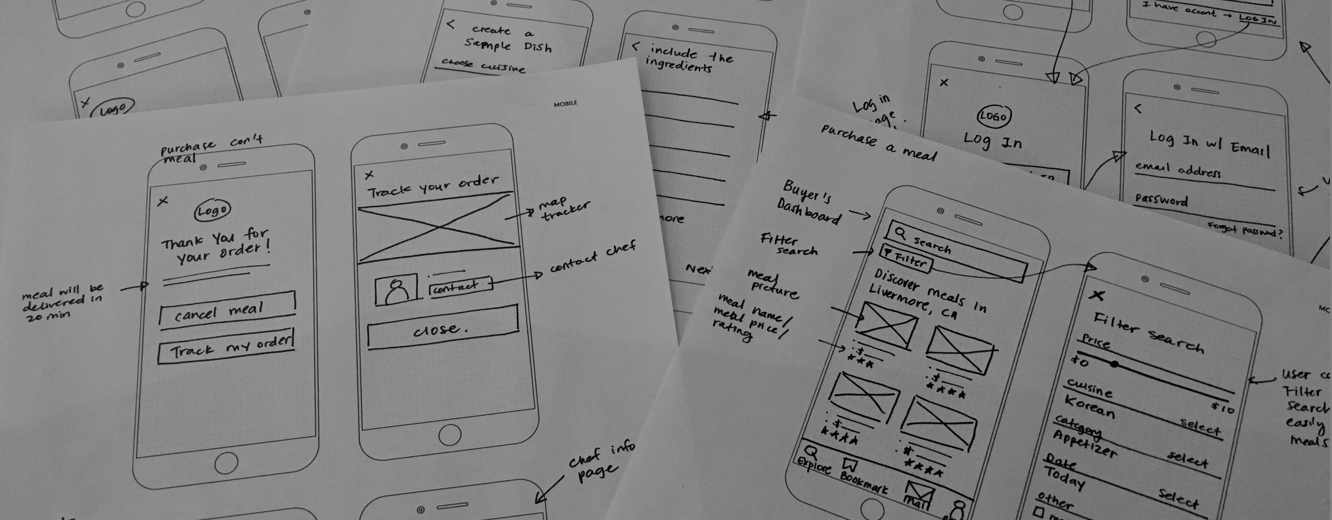 create a
Sample Dish
choose cuisine
< include the
ingredients
I have acount → Log In
Logo
MOBILE
purchase con't
meal
Logo
Thank You for
your order!
cancel meal
Track my order
meal will be
delivered in
20 min
Track your order
map
tracker
contact
contact chef
close.
chef info
page
Log in
LOGO
Log In
Log In w/ Email
email address
password
Forgot passwd?
purchase a meal
Buyer's
Dashboard
Filter
search
meal
picture
meal name/
meal price/
rating
search
Filter
Discover meals in
Livermore, CA
Explore
Bookmark
mail
Filter search
Price
$0
$10
cuisine
Korean select
Category
Appetizer select
Date
Today select
other
user
Filter
search
easily
meals